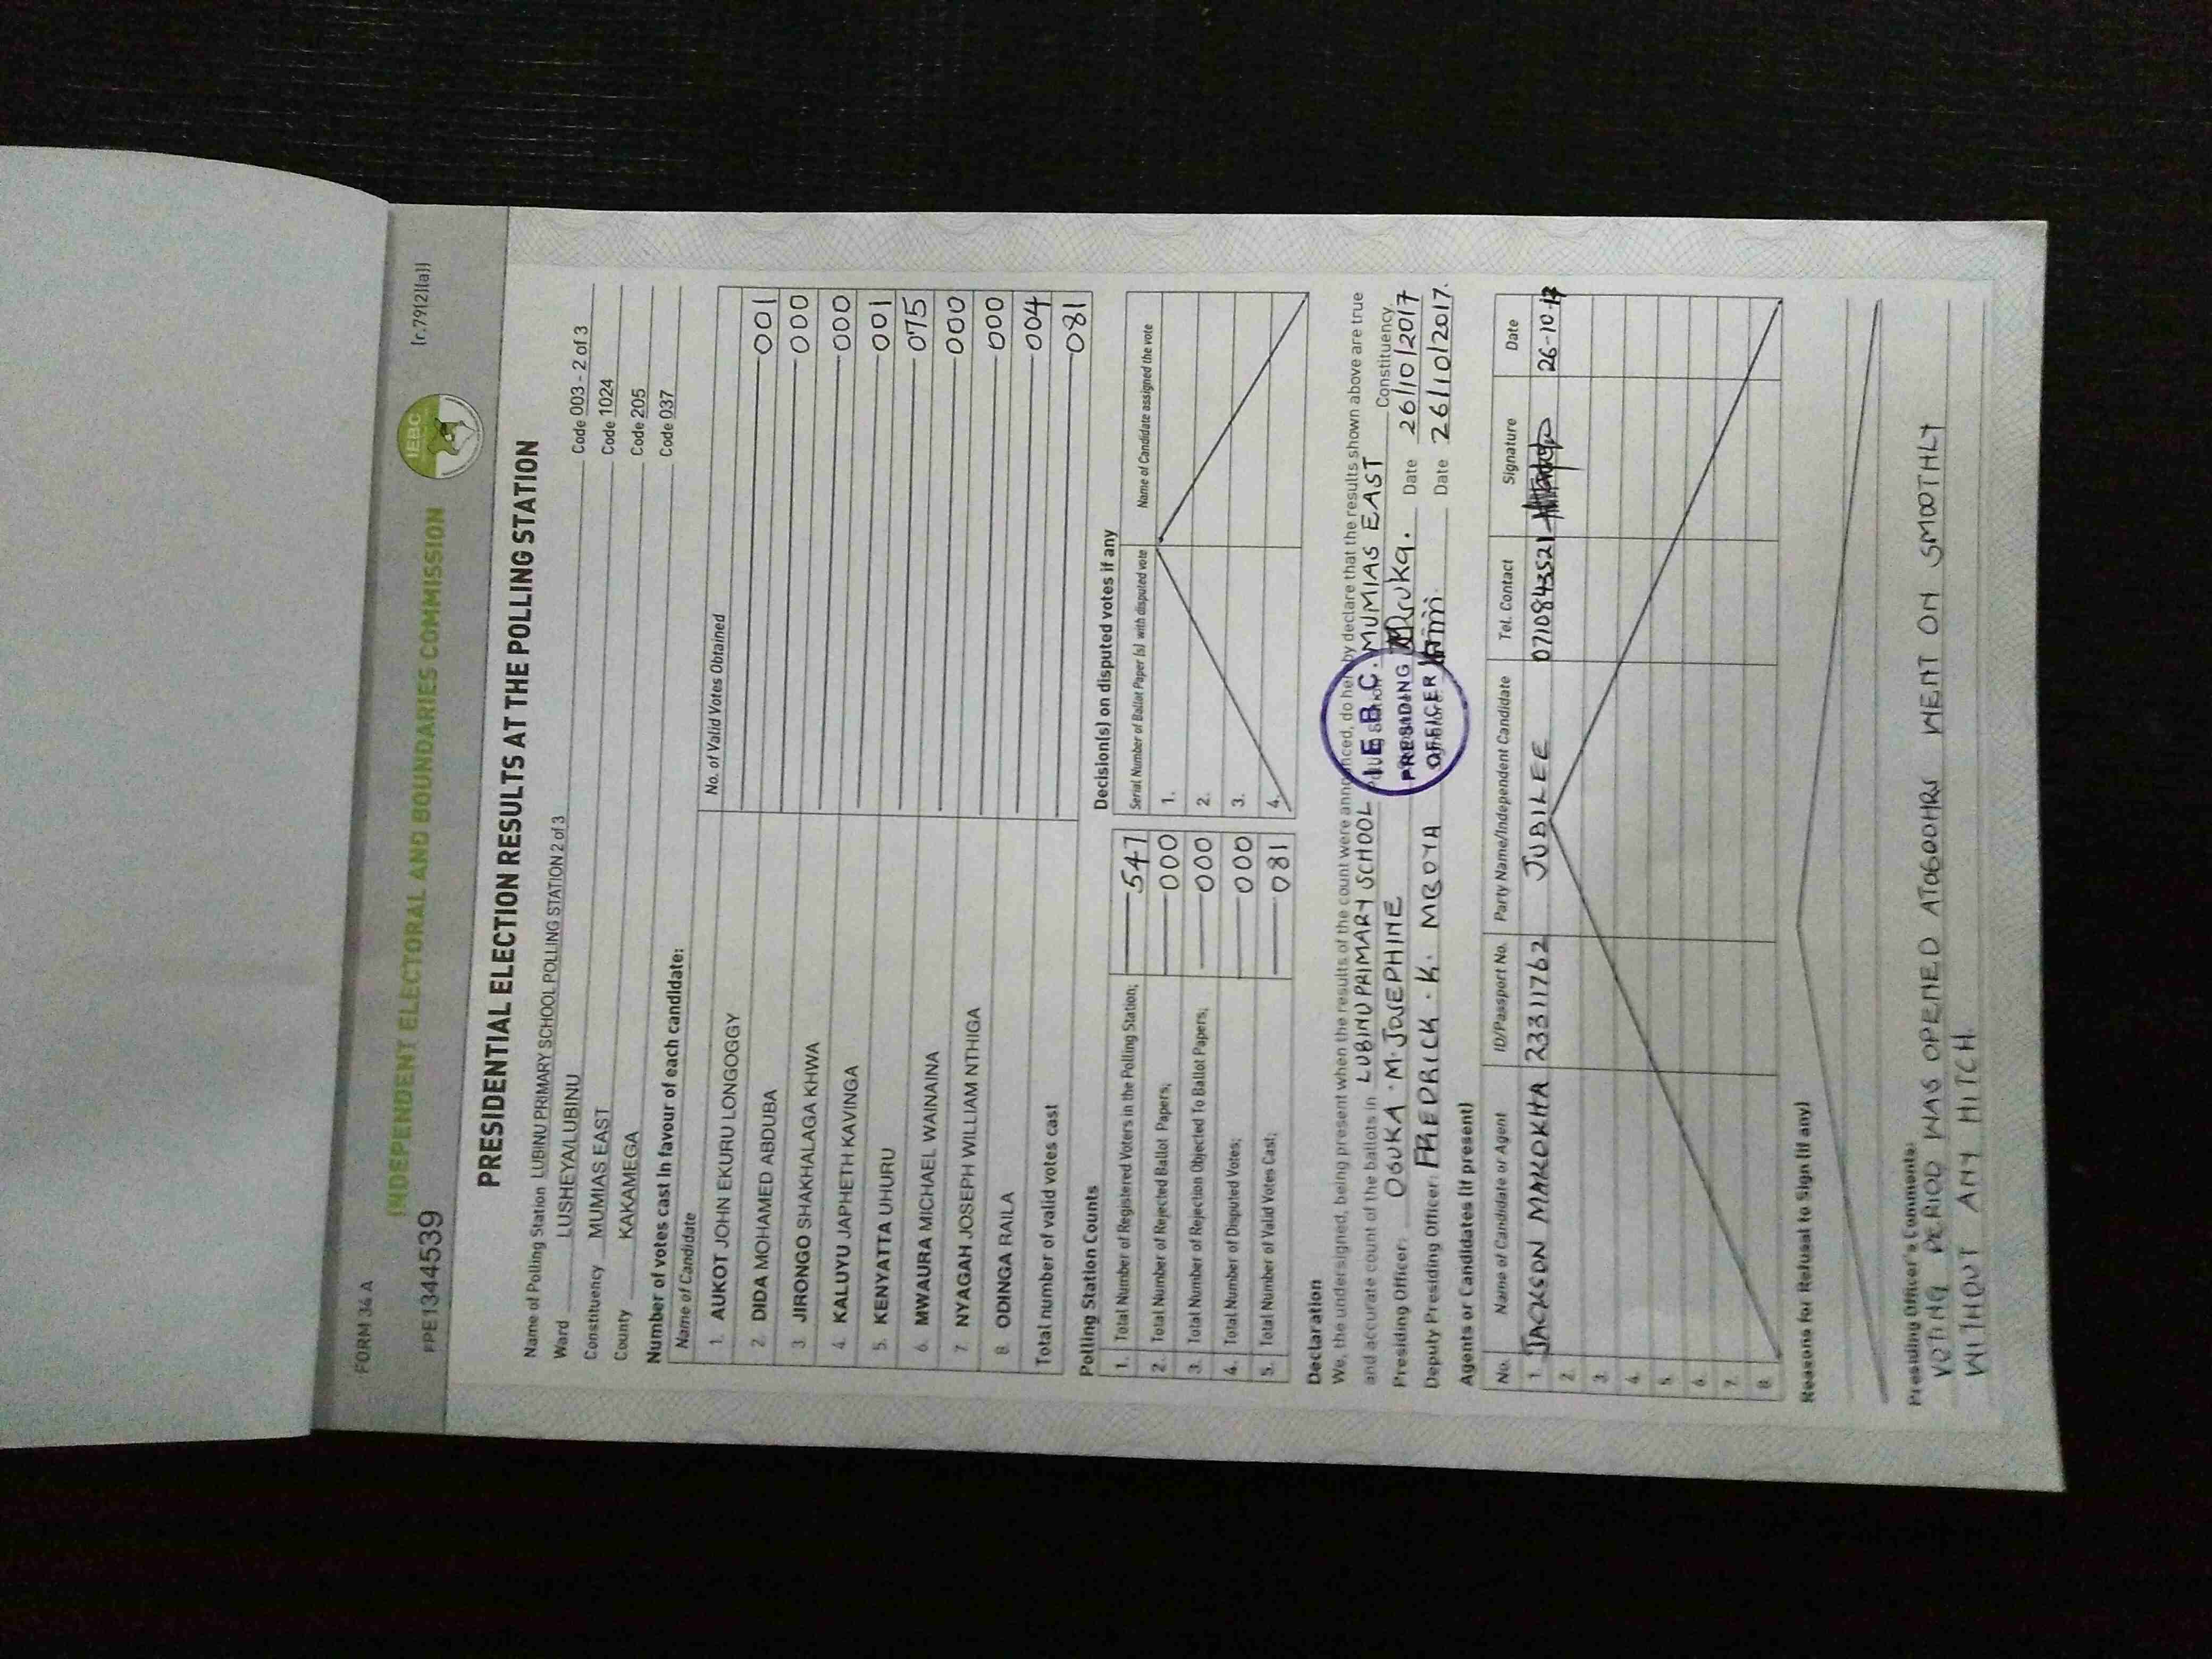 FORM 34 A
[r.79(2)(a)]
INDEPENDENT ELECTORAL AND BOUNDARIES COMMISSION
IEBC
PPE1344539
PRESIDENTIAL ELECTION RESULTS AT THE POLLING STATION
Name of Polling Station LUBINU PRIMARY SCHOOL POLLING STATION 2 of 3 Code 003 - 2 of 3
Ward LUSHEYA/LUBINU Code 1024
Constituency MUMIAS EAST Code 205
County KAKAMEGA Code 037
Number of votes cast in favour of each candidate:
Name of Candidate No. of Valid Votes Obtained
1. AUKOT JOHN EKURU LONGOGGY 001
2. DIDA MOHAMED ABDUBA 000
3. JIRONGO SHAKHALAGA KHWA 000
4. KALUYU JAPHETH KAVINGA 001
5. KENYATTA UHURU 075
6. MWAURA MICHAEL WAINAINA 000
7. NYAGAH JOSEPH WILLIAM NTHIGA 000
8. ODINGA RAILA 004
Total number of valid votes cast 081
Polling Station Counts
1. Total Number of Registered Voters in the Polling Station; 547
2. Total Number of Rejected Ballot Papers; 000
3. Total Number of Rejection Objected To Ballot Papers; 000
4. Total Number of Disputed Votes; 000
5. Total Number of Valid Votes Cast; 081
Decision(s) on disputed votes if any
Serial Number of Ballot Paper (s) with disputed vote Name of Candidate assigned the vote
1.
2.
3.
4.
Declaration
We, the undersigned, being present when the results of the count were announced, do hereby declare that the results shown above are true
and accurate count of the ballots in LUBINU PRIMARY SCHOOL Polling Station. MUMIAS EAST Constituency
Presiding Officer: OGUKA . M. JOSEPHINE Date 26/10/2017
Deputy Presiding Officer: FREDRICK . K. MBOYA Date 26/10/2017.
I.E.B.C.
PRESIDING
OFFICER
Agents or Candidates (if present)
No. Name of Candidate or Agent ID/Passport No. Party Name/Independent Candidate Tel. Contact Signature Date
1. JACKSON MAKOKHA 23311762 JUBILEE 0710843521 26-10-17
2.
3.
4.
5.
6.
7.
8.
Reasons for Refusal to Sign (if any)
Presiding Officer's Comments:
VOTING PERIOD WAS OPENED AT0600HRS WENT ON SMOOTHLY
WITHOUT ANY HITCH